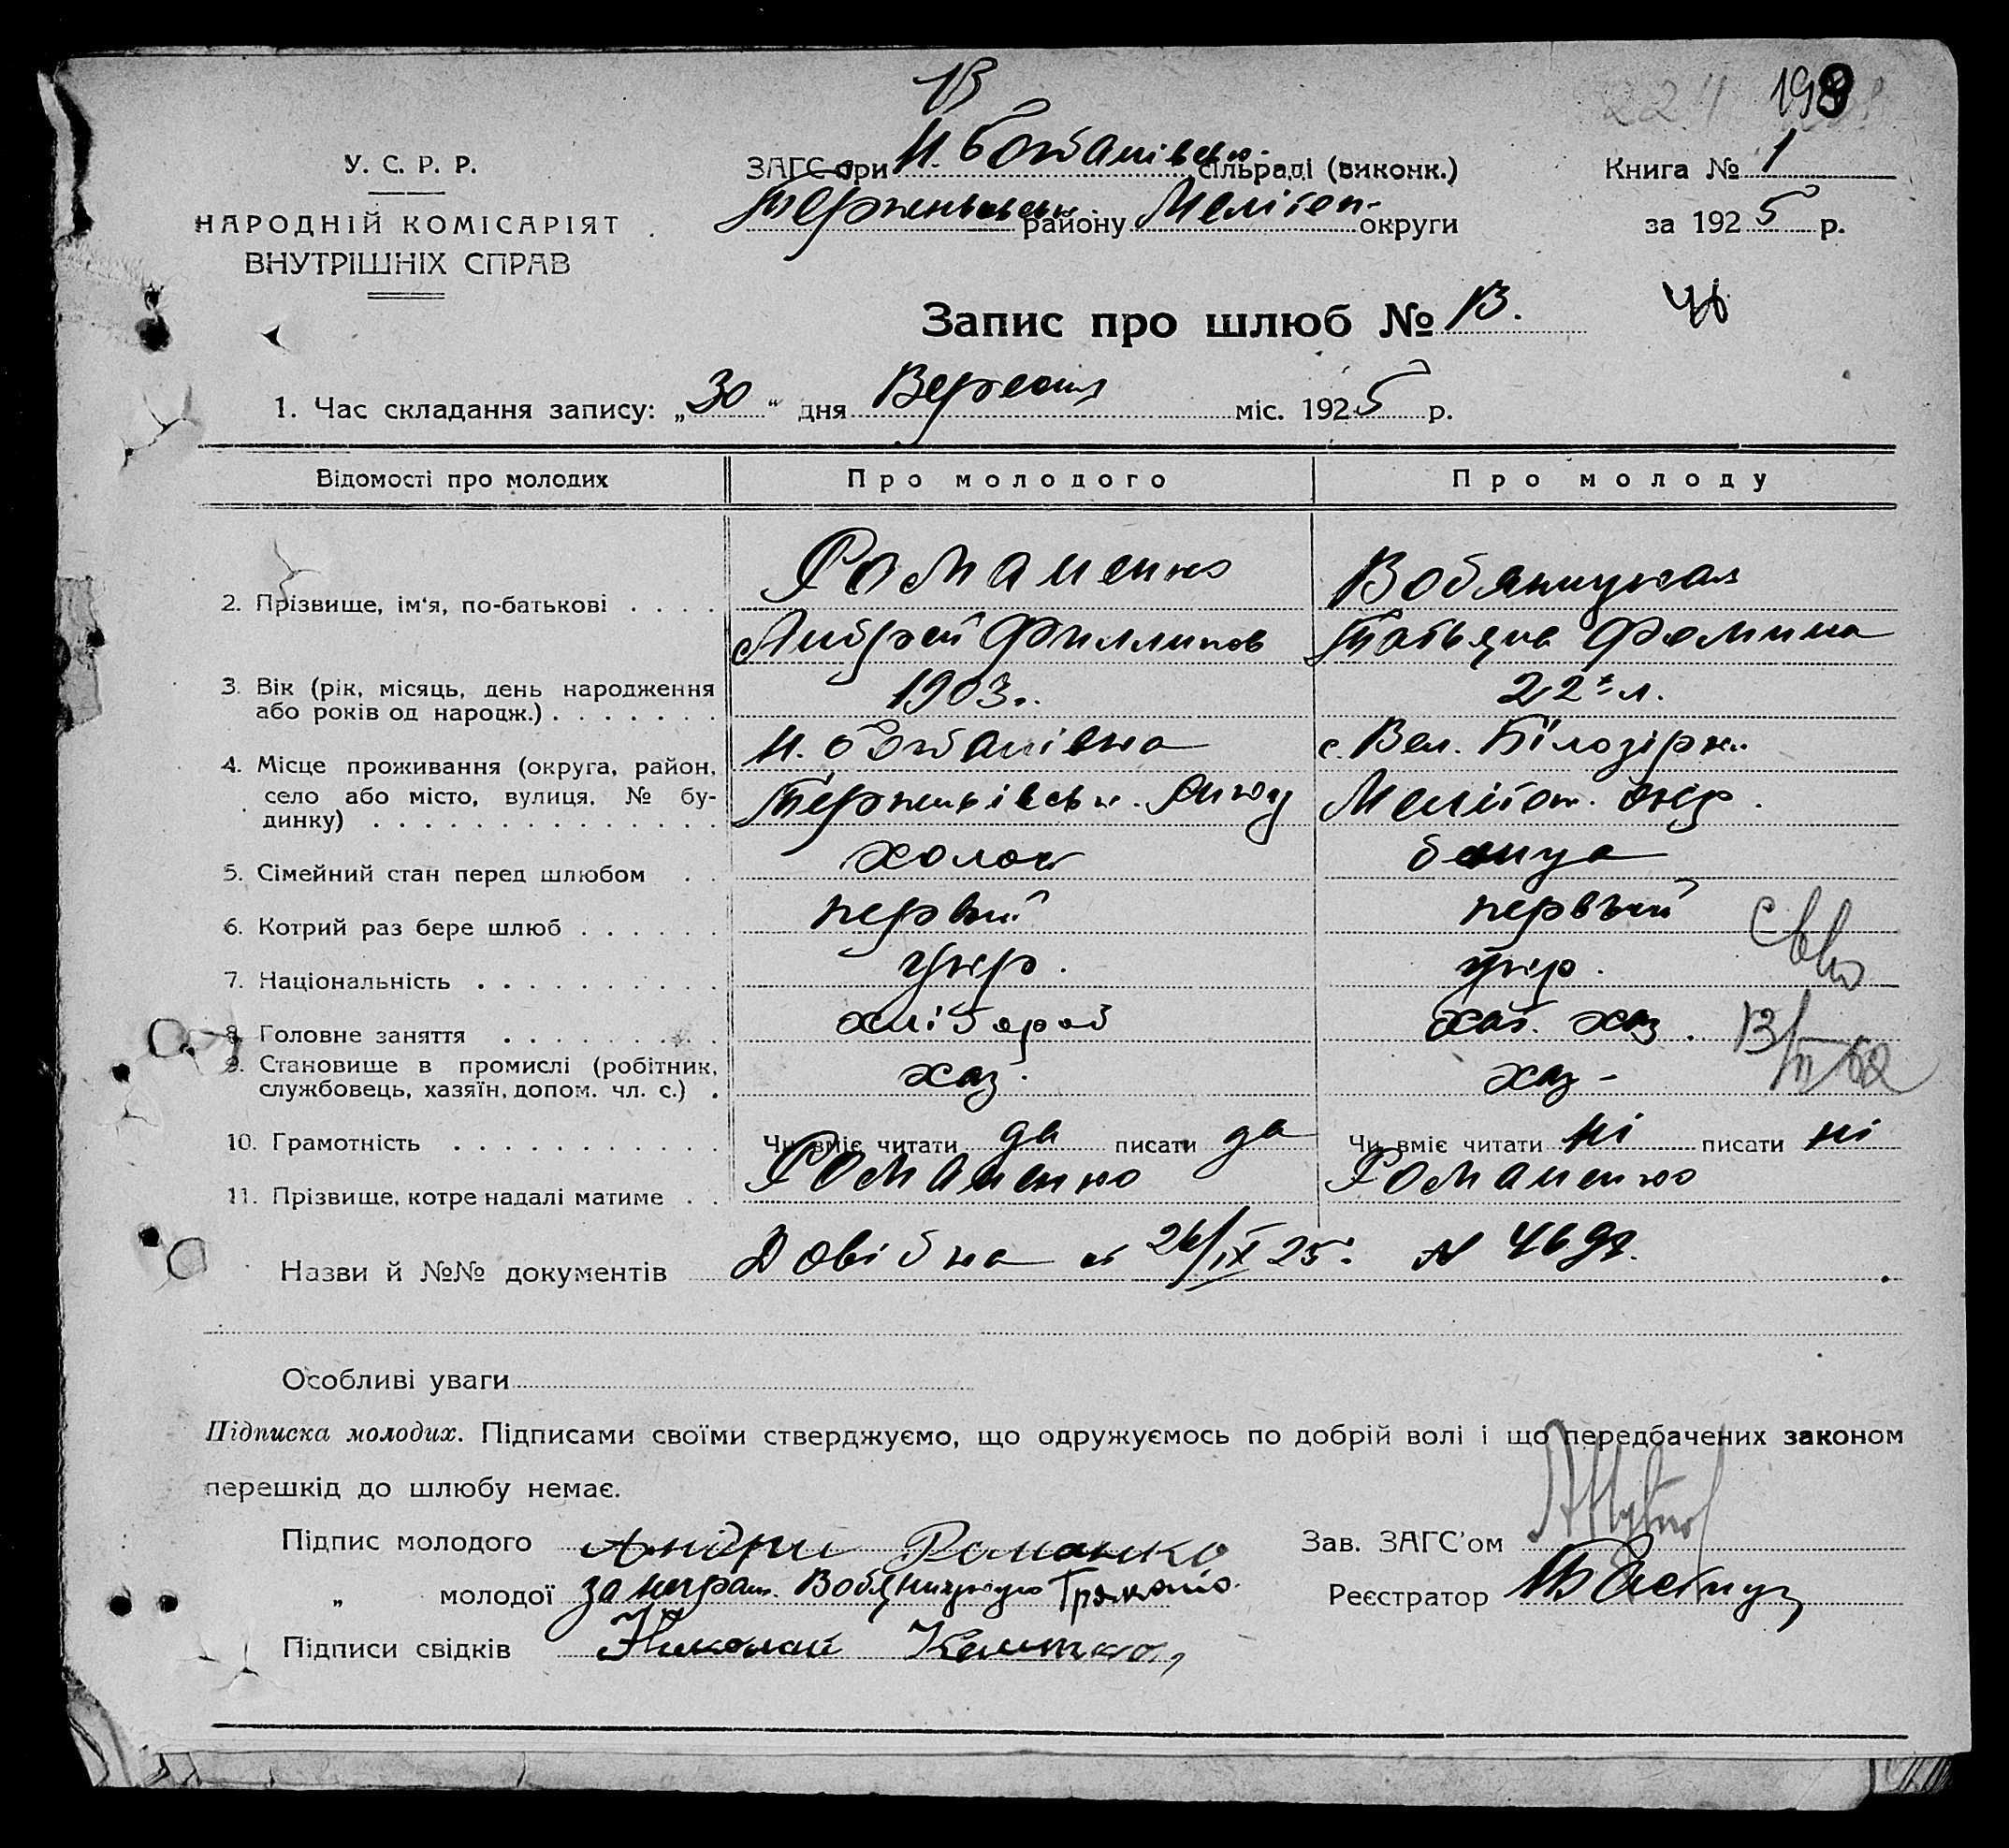 13
198
У. С. Р. Р.
ЗАГС при Н. Богданівськ. сільраді (виконк.)
Книга № 1
НАРОДНІЙ КОМІСАРІЯТ
району Мелітоп. округи
за 1925 р.
ВНУТРІШНІХ СПРАВ
Запис про шлюб № 13.
1. Час складання запису: „30“ дня Вересня міс. 1925 р.
Відомості про молодих
Про молодого
Про молоду
Романенко
2. Прізвище, ім'я, по-батькові
Андрей Филлипов
Татьяна Фомина
3. Вік (рік, місяць, день народження або років од народж.)
1903.
22 л.
4. Місце проживання (округа, район, село або місто, вулиця, № будинку)
Н. Богданівка
с. Вел. Білозірки
Мелітоп. окр.
5. Сімейний стан перед шлюбом
холост
6. Котрий раз бере шлюб
первый
первый
7. Національність
укр.
укр.
8. Головне заняття
хлібороб
хат. хаз.
9. Становище в промислі (робітник, службовець, хазяїн, допом. чл. с.)
хаз.
хаз-
10. Грамотність
Чи вміє читати да писати да
Чи вміє читати ні писати ні
11. Прізвище, котре надалі матиме
Романенко
Романенко
Назви й №№ документів
Довідка от 26/IX 25.
Особливі уваги
Підписка молодих. Підписами своїми стверджуємо, що одружуємось по добрій волі і що передбачених законом
перешкід до шлюбу немає.
Підпис молодого
Зав. ЗАГС'ом
„ молодої за неграм.
Реєстратор
Підписи свідків Николай